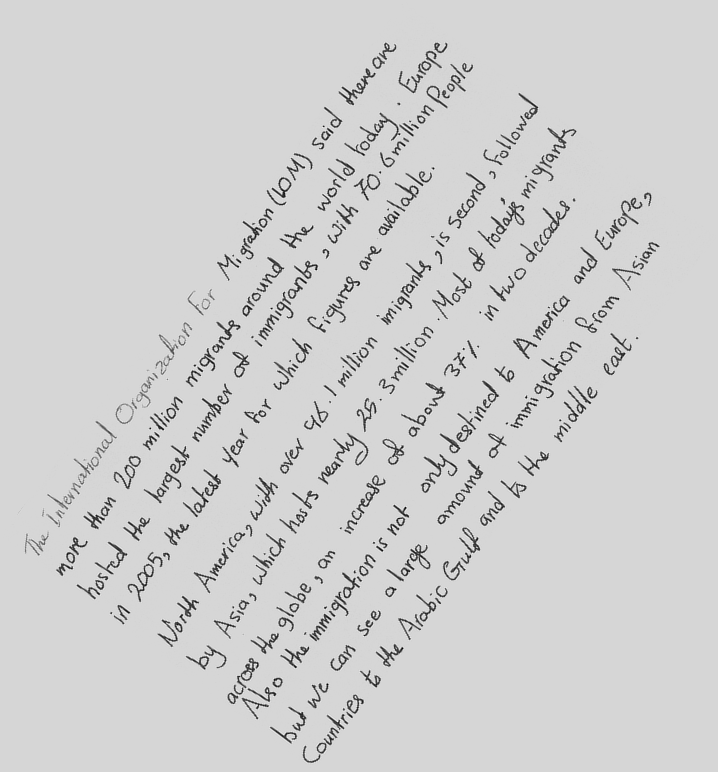 The International Organization For Migration (IOM) said there are
more than 200 million migrants around the world today. Europe
hosted the largest number of immigrants, with 70.6 million People
in 2005, the latest year for which figures are available.
North America, with over 45.1 million imigrants, is second, followed
by Asia, which hosts nearly 25.3 million. Most of today's migrants
across the globe, an increase of about 37% in two decades.
Also the immigration is not only destined to America and Europe,
but we can see a large amount of immigration from Asian
Countries to the Arabic Gulf and to the middle east.